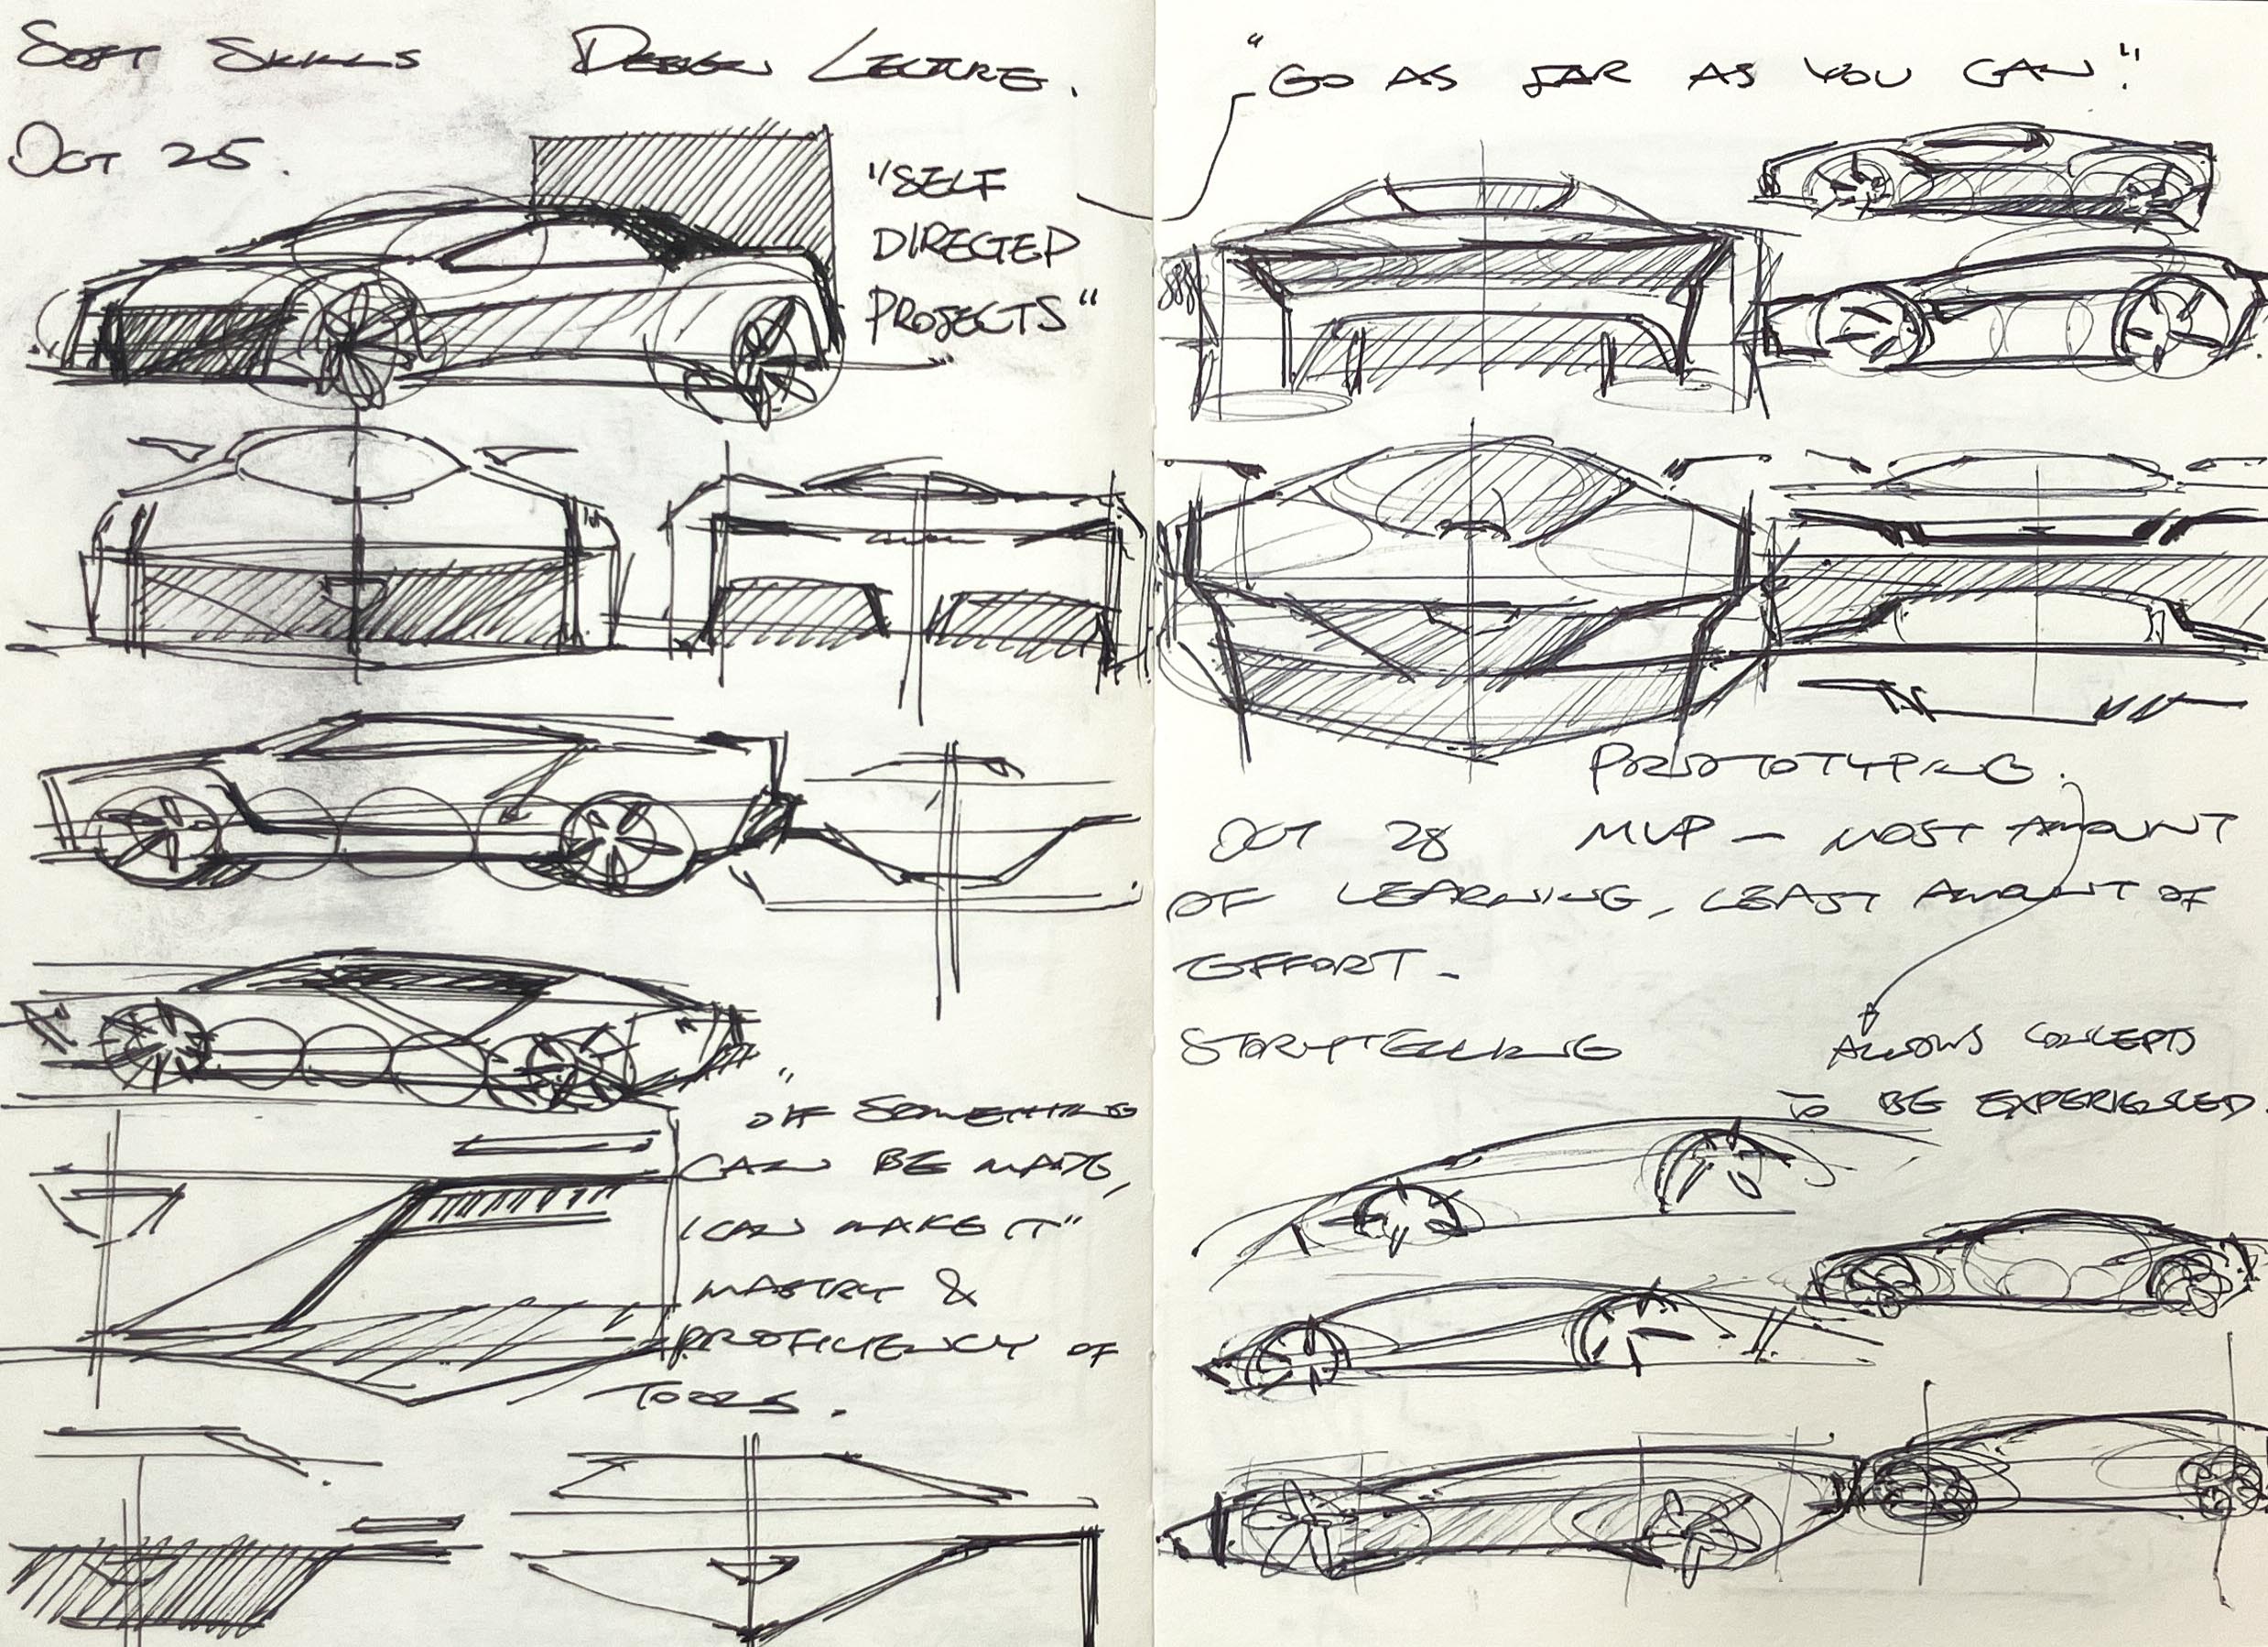 SOFT SKILLS DESIGN LECTURE.
OCT 25.
"SELF
DIRECTED
PROJECTS"
"IF SOMETHING
CAN BE MADE,
I CAN MAKE IT"
MASTRY &
PROFICIENCY OF
TOOLS.
"GO AS FAR AS YOU CAN"
PROTOTYPING.
OCT 28 MVP - MOST AMOUNT
OF LEARNING, LEAST AMOUNT OF
EFFORT-
STORYTELLING
ALLOWS CONCEPTS
TO BE EXPERIENCED.